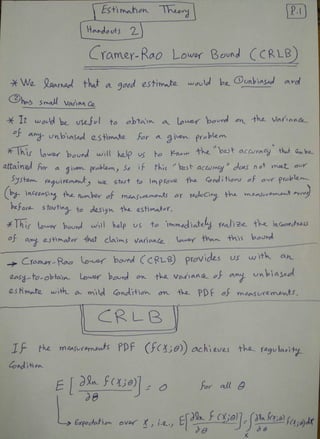 Estimation Theory
P.1
Handouts 2
Cramer-Rao Lower Bound (CRLB)
* We learned that a good estimate would be ① unbiased and
② has small variance
* It would be useful to obtain a lower bound on the variance
of any unbiased estimate for a given problem
* This lower bound will help us to know the "best accuracy" that can be
attained for a given problem, so if this "best accuracy" does not meet our
system requirement, we start to improve the conditions of our problem
(by increasing the number of measurements or reducing the measurement error)
before starting to design the estimator.
* This lower bound will help us to immediately realize the incorrectness
of any estimator that claims variance lower than this bound
→ Cramer-Rao lower bound (CRLB) provides us with an
easy-to-obtain lower bound on the variance of any unbiased
estimate with a mild condition on the PDF of measurements.
CRLB
If the measurements PDF (f(x;θ)) achieves the regularity
condition
E[∂ln f(x;θ)/∂θ] = 0 for all θ
↳ Expectation over x, i.e., E[∂ln f(x;θ)/∂θ] = ∫x ∂ln f(x;θ)/∂θ f(x;θ) dx